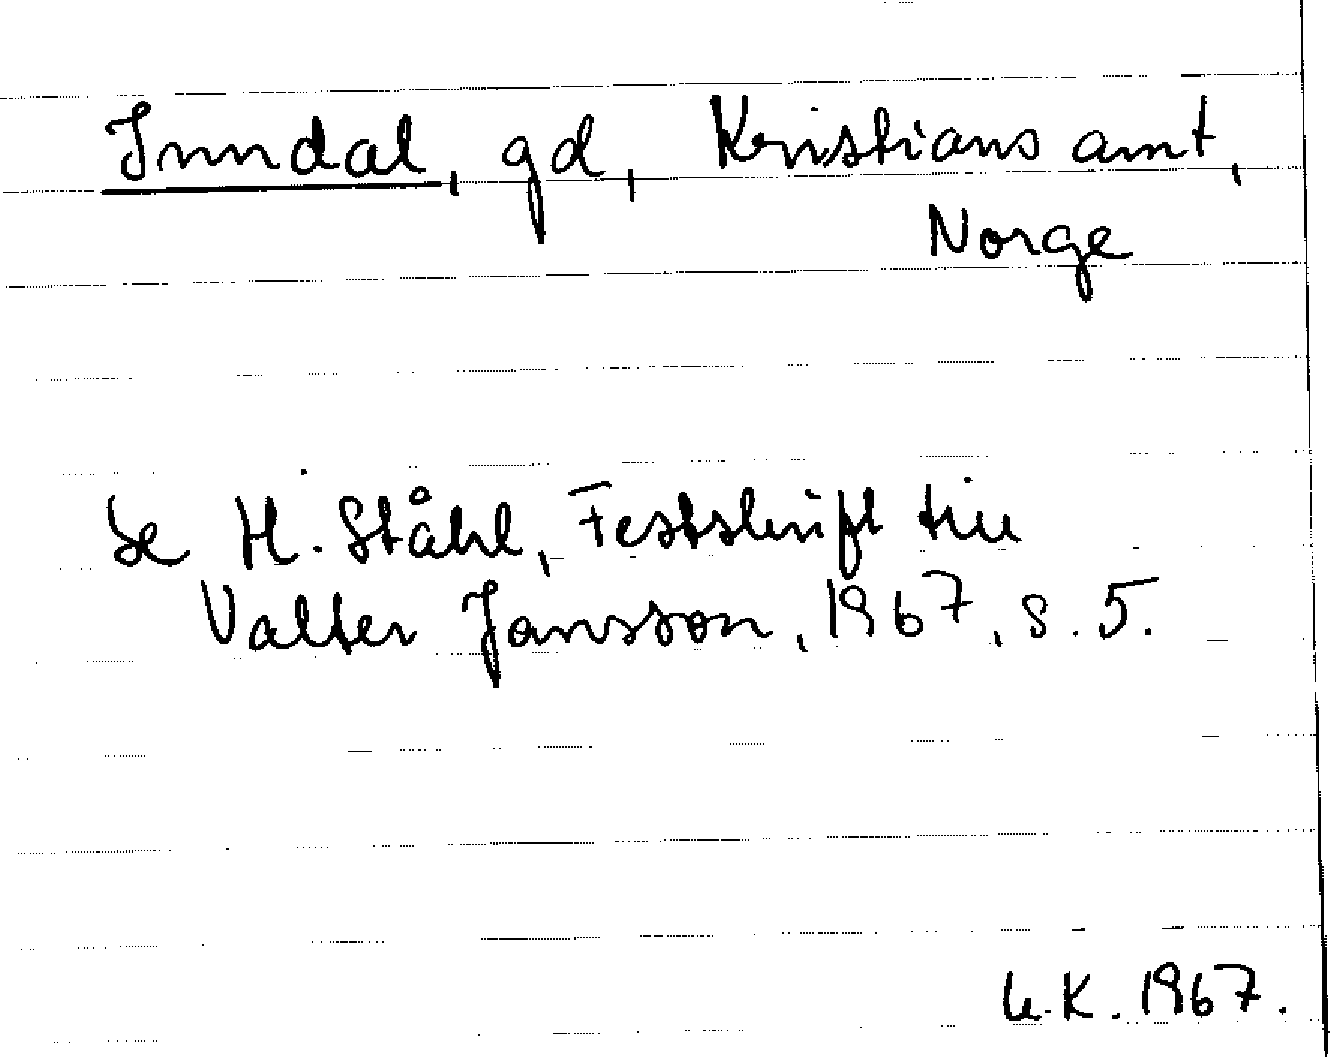 Inndal, gd, Kristians amt,
Norge
se H. Ståhl, Festskrift till
Valter Jansson, 1967, s. 5.
U.K. 1967.